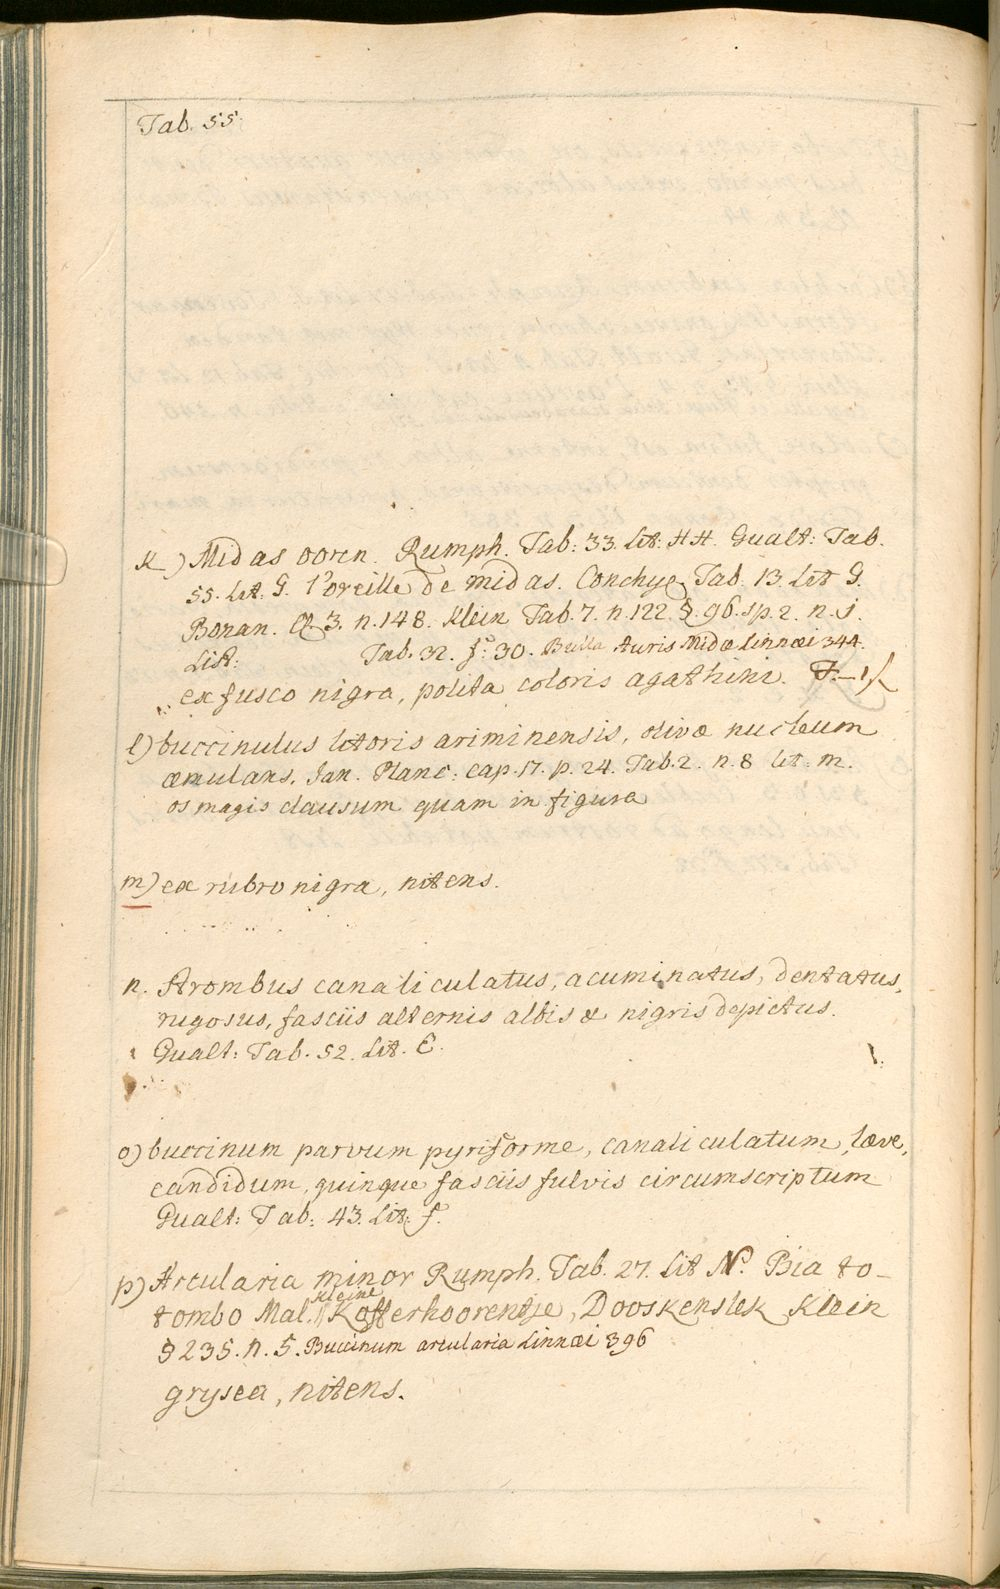 Tab. 55.
K) Midas ooren. Rumph. Tab: 33. Lit: HH. Gualt: Tab.
55. Lit. G. l'oreille de midas. Conchyg Tab. 13. Lit G.
Bonan. Cl. 3. n. 148. Klein Tab. 7. n. 122. §. 96. sp. 2. n. 1.
List: Tab. 32. f. 30. Bulla Auris Midæ Linnæi 344.
ex fusco nigra, polita coloris agathini.
l) buccinulus litoris ariminensis, olivæ nucleum
æmulans, Jan. Planc: cap. 17. p. 24. Tab. 2. n. 8 lit: m.
os magis clausum quam in figura
m) ex rubro nigra, nitens.
n. Strombus canaliculatus, acuminatus, dentatus,
rugosus, fasciis alternis albis & nigris depictus.
Gualt: Tab. 52. Lit. E.
o) buccinum parvum pyriforme, canaliculatum, læve,
candidum, quinque fasciis fulvis circumscriptum
Gualt: Tab: 43. Lit: f.
p) Arcularia minor Rumph. Tab. 27. Lit N. Bia to-
tombo Mal. kleine Kofferhoorentje, Dooskenslek Klein
§ 235. n. 5. Buccinum arcularia Linnæi 396
grysea, nitens.